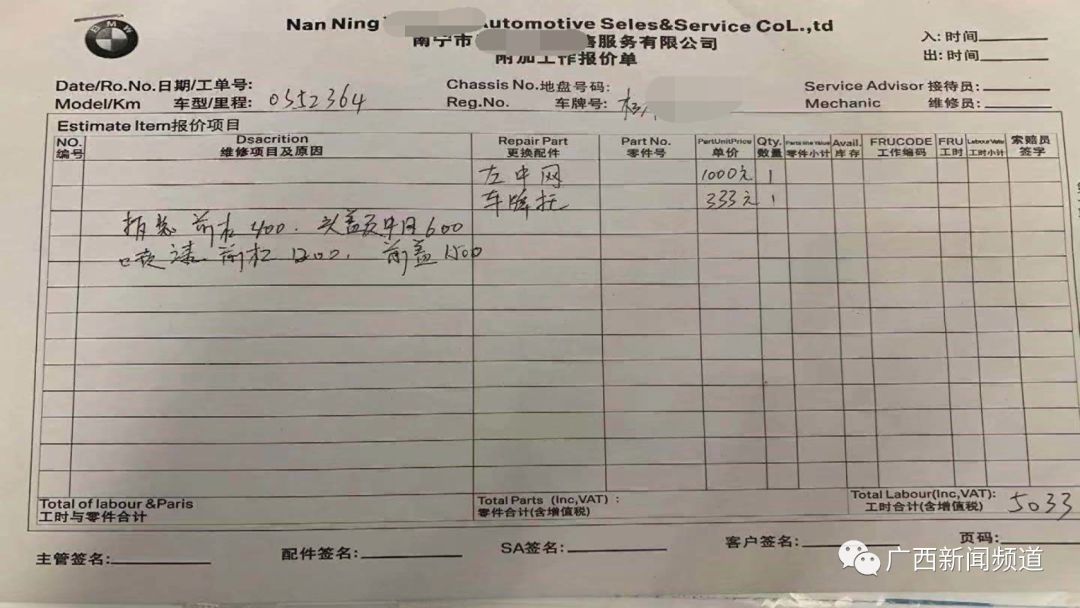 BMW
Nan Ning Automotive Seles&Service CoL.,td
南宁市 售服务有限公司
附加工作报价单
入: 时间
出: 时间
Date/Ro.No.日期/工单号:
Chassis No.地盘号码:
Service Advisor 接待员:
Model/Km 车型/里程: 0352364
Reg.No. 车牌号: 桂
Mechanic 维修员:
Estimate Item报价项目
NO. Dsacrition Repair Part Part No. PartUnitPrice Qty. Parts line Value Avail. FRUCODE FRU Labour Valu 索赔员
编号 维修项目及原因 更换配件 零件号 单价 数量 零件小计 库存 工作编码 工时 工时小计 签字
左中网 1000元 1
车牌托 333元 1
拆装前杠400. 600
喷漆前杠1200. 前盖1500
Total of labour &Paris
工时与零件合计
Total Parts (Inc,VAT) :
零件合计(含增值税)
Total Labour(Inc,VAT): 5033
工时合计(含增值税)
主管签名:
配件签名:
SA签名:
客户签名:
页码:
广西新闻频道